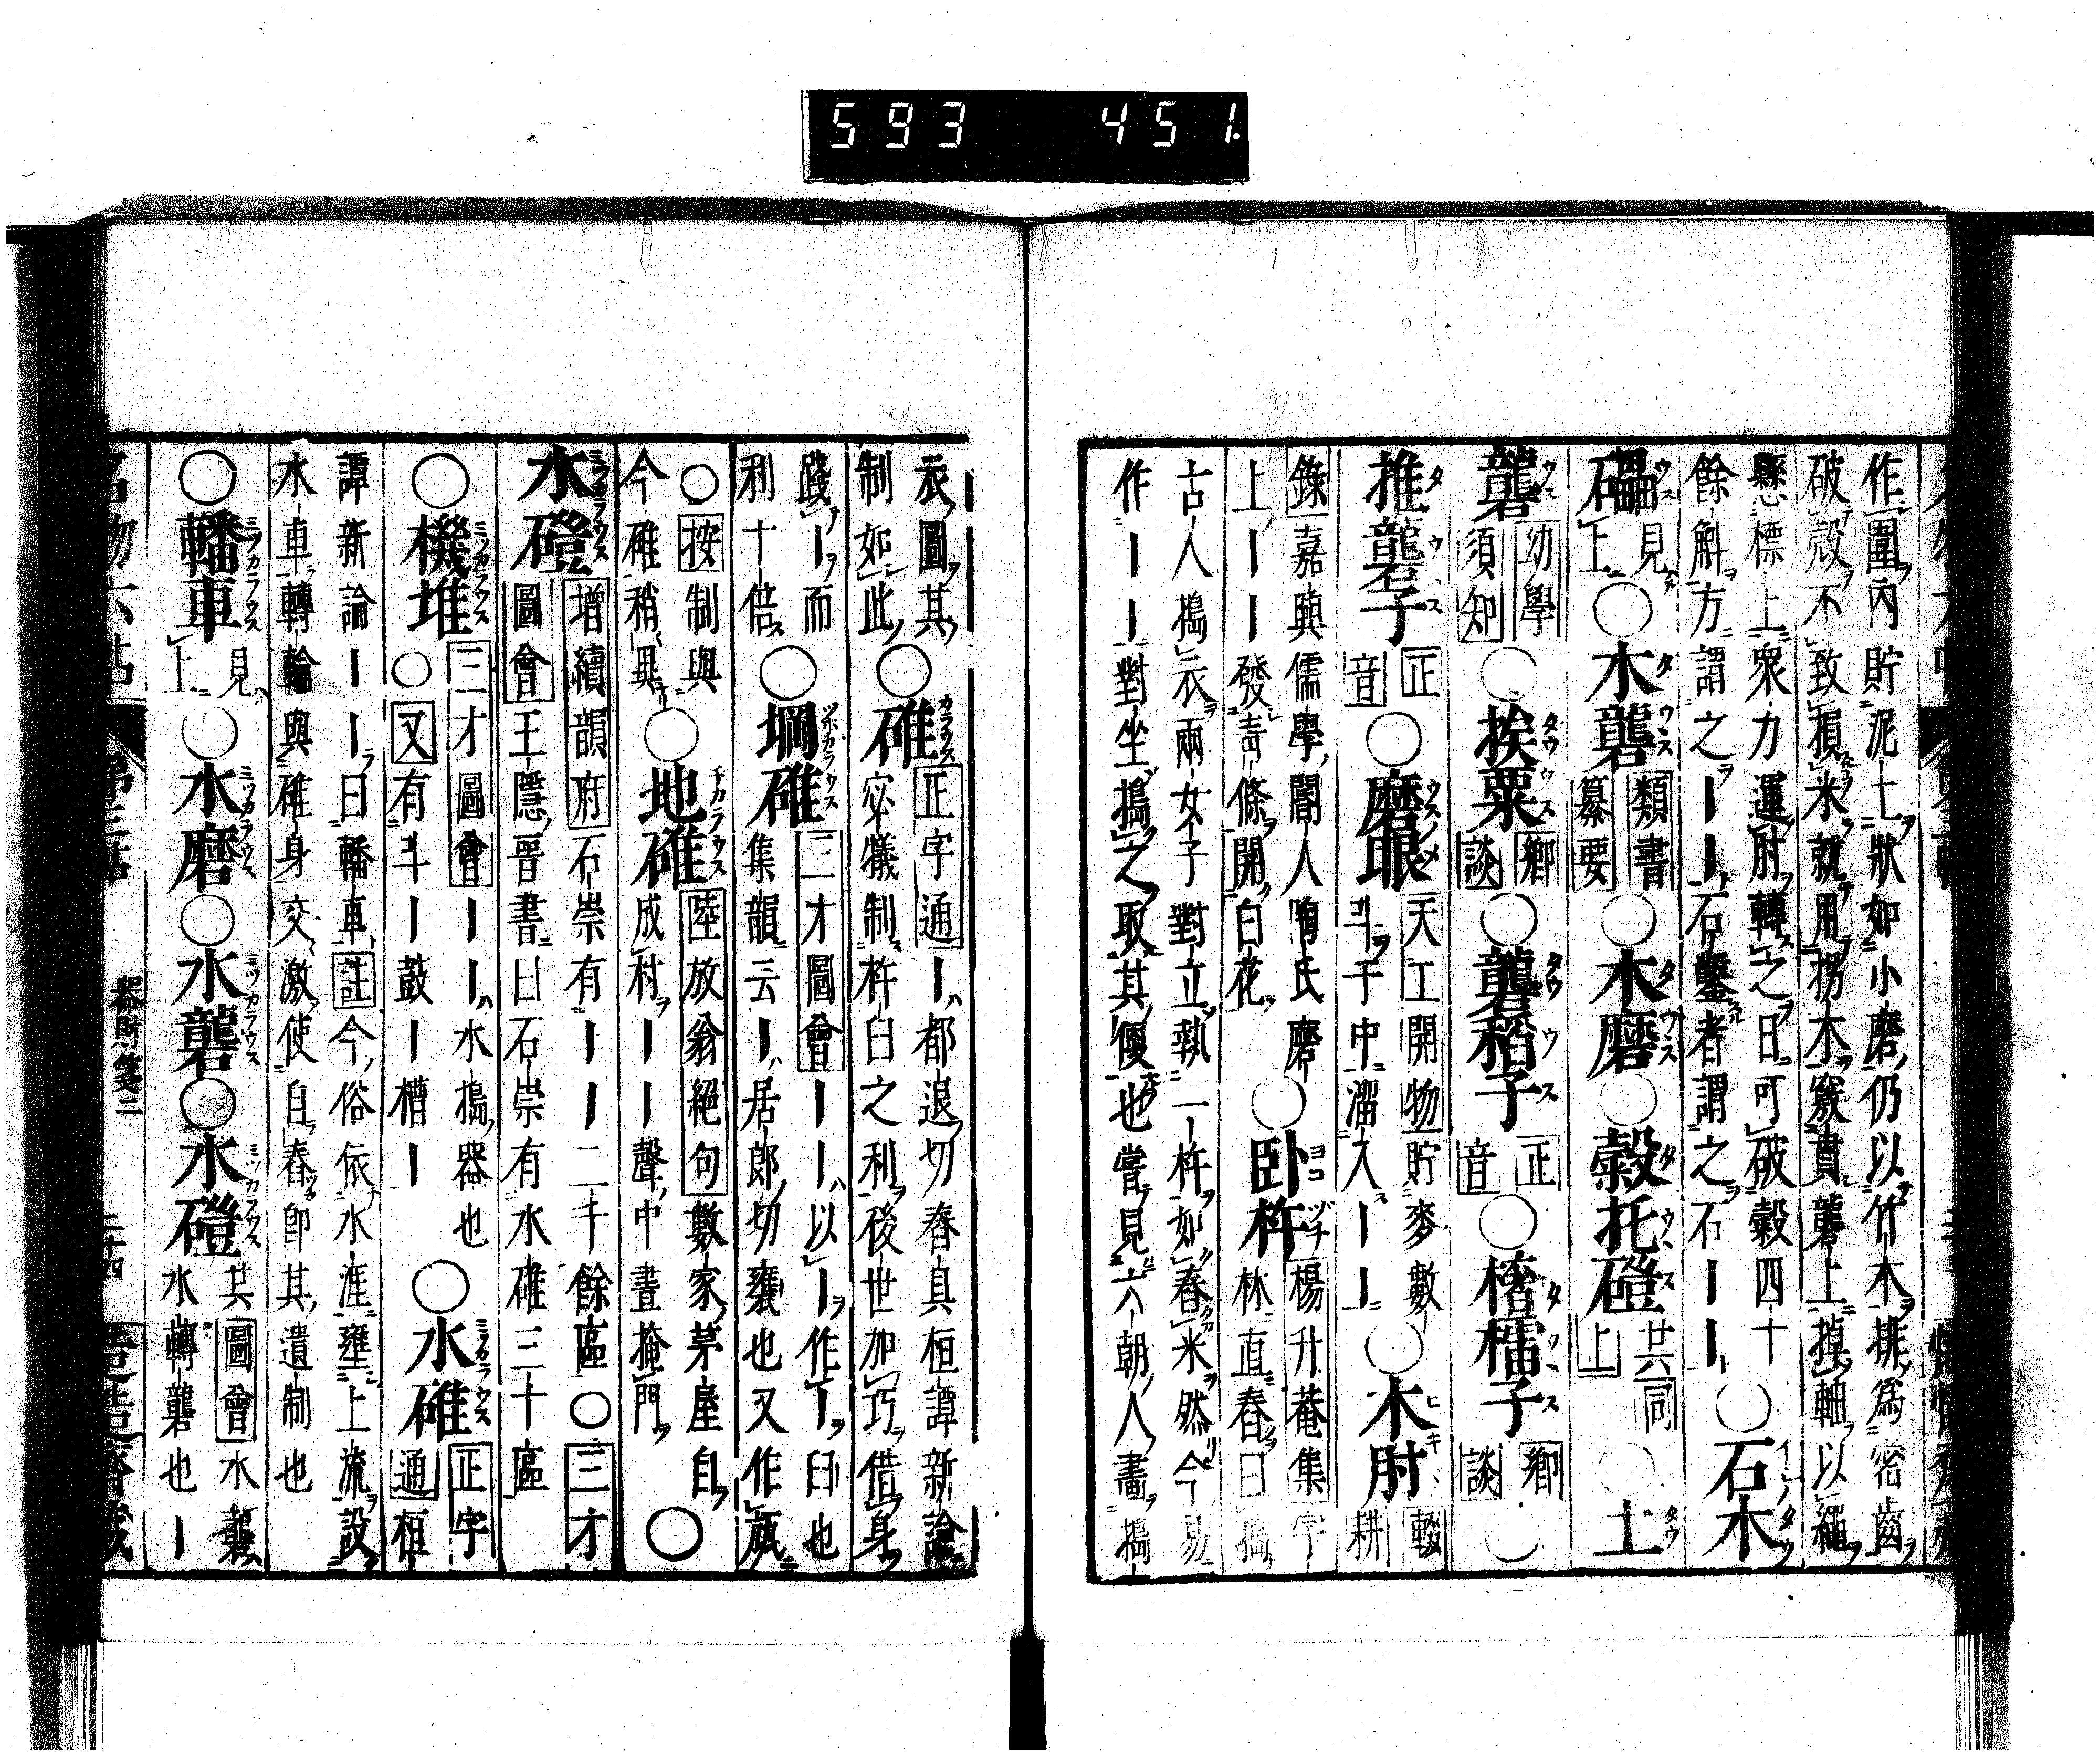 593 451
作圍內貯泥土狀如小磨仍以竹木排為密齒
破穀不致損米就用拐木竅貫礱上掉軸以繩
懸標上衆力運肘轉之日可破穀四十
餘斛方謂之ーー石鑿者謂之石ーー○石木
磑見上○木礱類書纂要○木磨○穀托磴共同上○土
礱幼學須知○挨粟鄉談○礱稻子正音○𣛮檑子鄉談○
推礱子正音○磨眼天工開物貯麥數斗于中溜入ーー○木肘輟耕
錄嘉與儒學閽人陶氏磨
上ーー發青條開白花○臥杵楊升菴集字林直舂曰擣
古人擣衣兩女子對立執一杵如舂米然今易
作ーー對坐擣之取其便也嘗見六朝人畫擣
衣圖其
制如此○碓正字通ー都退切舂具桓譚新論
宓犠制杵臼之利後世加巧借身
踐ー而
利十倍○堈碓三才圖會ーー以ー作ー臼也
集韻云ー居郎切甕也又作瓬
○按制與
今碓稍異○地碓陸放翁絕句數家茅屋自
成村ーー聲中晝掩門○
水磴增續韻府石崇有ーー二千餘區○三才
圖會王隱晉書曰石崇有水碓三十區
○機堆三才圖會ーー水擣器也
○又有斗ー鼓ー槽ー○水碓正字通桓
譚新論ーー曰轓車註今俗依水涯壅上流設
水車轉輪與碓身交激使自舂卽其遺制也
○轓車見上○水磨○水礱○水磴共圖會水礱
水轉礱也ー
名物六帖 第三帖 器財箋二 二十四